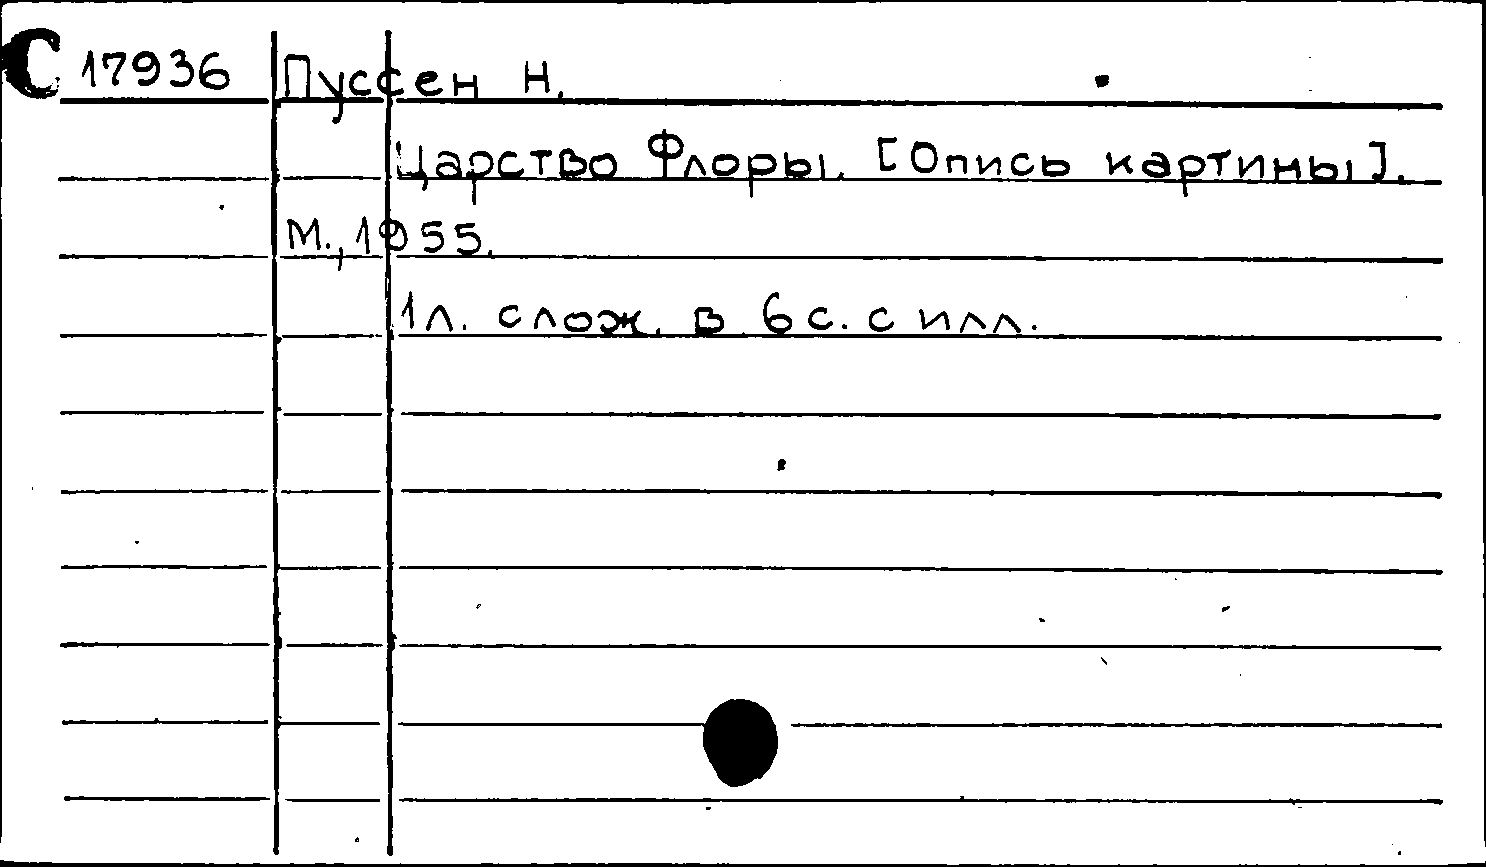 С 17936 Пуссен Н.
Царство Флоры. [Опись картины].
М., 1955.
1 л. слож. в 6 с. с илл.